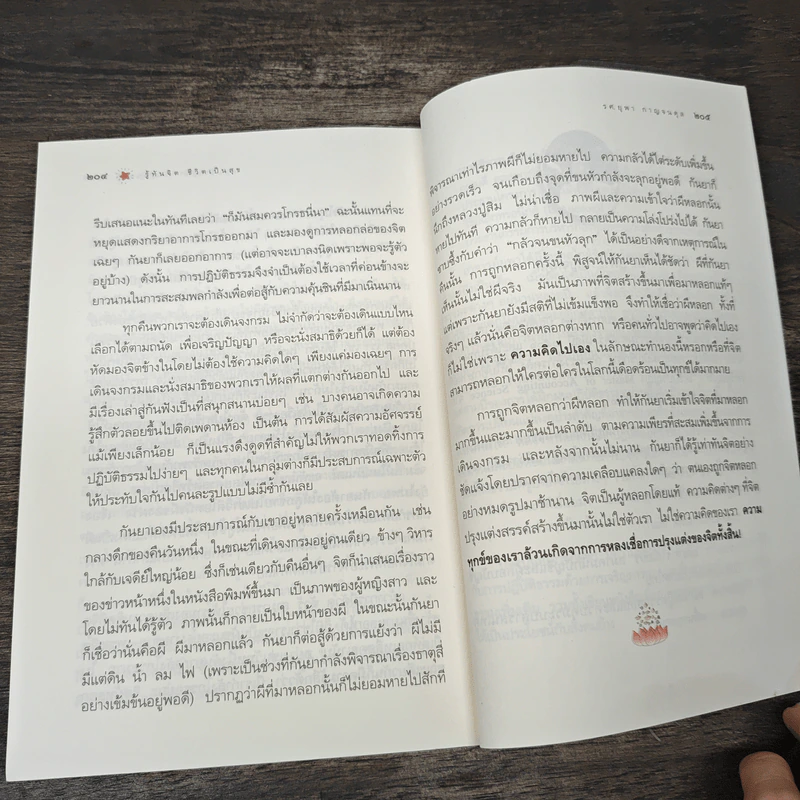 ๒๐๔ รู้ทันจิต ชีวิตเป็นสุข
รีบเสนอแนะในทันทีเลยว่า "ก็มันสมควรโกรธนี่นา" ฉะนั้นแทนที่จะ
หยุดแสดงกริยาอาการโกรธออกมา และมองดูการหลอกล่อของจิต
เฉยๆ กันยาก็เลยออกอาการ (แต่อาจจะเบาลงนิดเพราะพอจะรู้ตัว
อยู่บ้าง) ดังนั้น การปฏิบัติธรรมจึงจำเป็นต้องใช้เวลาที่ค่อนข้างจะ
ยาวนานในการสะสมพลกำลังเพื่อต่อสู้กับความคุ้นชินที่มีมาเนิ่นนาน
ทุกคืนพวกเราจะต้องเดินจงกรม ไม่จำกัดว่าจะต้องเดินแบบไหน
เลือกได้ตามถนัด เพื่อเจริญปัญญา หรือจะนั่งสมาธิด้วยก็ได้ แต่ต้อง
หัดมองจิตข้างในโดยไม่ต้องใช้ความคิดใดๆ เพียงแค่มองเฉยๆ การ
เดินจงกรมและนั่งสมาธิของพวกเราให้ผลที่แตกต่างกันออกไป และ
มีเรื่องเล่าสู่กันฟังเป็นที่สนุกสนานบ่อยๆ เช่น บางคนอาจเกิดความ
รู้สึกตัวลอยขึ้นไปติดเพดานห้อง เป็นต้น การได้สัมผัสความอัศจรรย์
แม้เพียงเล็กน้อย ก็เป็นแรงดึงดูดที่สำคัญไม่ให้พวกเราทอดทิ้งการ
ปฏิบัติธรรมไปง่ายๆ และทุกคนในกลุ่มต่างก็มีประสบการณ์เฉพาะตัว
ให้ประทับใจกันไปคนละรูปแบบไม่มีซ้ำกันเลย
กันยาเองมีประสบการณ์กับเขาอยู่หลายครั้งเหมือนกัน เช่น
กลางดึกของคืนวันหนึ่ง ในขณะที่เดินจงกรมอยู่คนเดียว ข้างๆ วิหาร
ใกล้กับเจดีย์ใหญ่น้อย ซึ่งก็เช่นเดียวกับคืนอื่นๆ จิตก็นำเสนอเรื่องราว
ของข่าวหน้าหนึ่งในหนังสือพิมพ์ขึ้นมา เป็นภาพของผู้หญิงสาว และ
โดยไม่ทันได้รู้ตัว ภาพนั้นก็กลายเป็นใบหน้าของผี ในขณะนั้นกันยา
ก็เชื่อว่านั่นคือผี ผีมาหลอกแล้ว กันยาก็ต่อสู้ด้วยการแย้งว่า ผีไม่มี
มีแต่ดิน น้ำ ลม ไฟ (เพราะเป็นช่วงที่กันยากำลังพิจารณาเรื่องธาตุสี่
อย่างเข้มข้นอยู่พอดี) ปรากฏว่าผีที่มาหลอกนั้นก็ไม่ยอมหายไปสักที
รศ.ยุพา กาญจนดุล ๒๐๕
พิจารณาเท่าไรภาพผีก็ไม่ยอมหายไป ความกลัวได้ไต่ระดับเพิ่มขึ้น
อย่างรวดเร็ว จนเกือบถึงจุดที่ขนหัวกำลังจะลุกอยู่พอดี กันยาก็
นึกถึงหลวงปู่สิม ไม่น่าเชื่อ ภาพผีและความเข้าใจว่าผีหลอกนั้น
หายไปทันที ความกลัวก็หายไป กลายเป็นความโล่งโปร่งไปได้ กันยา
ซาบซึ้งกับคำว่า "กลัวจนขนหัวลุก" ได้เป็นอย่างดีจากเหตุการณ์ใน
คืนนั้น การถูกหลอกครั้งนี้ พิสูจน์ให้กันยาเห็นได้ชัดว่า ผีที่กันยา
เห็นนั้นไม่ใช่ผีจริง มันเป็นภาพที่จิตสร้างขึ้นมาเพื่อมาหลอกแท้ๆ
แต่เพราะกันยายังมีสติที่ไม่เข้มแข็งพอ จึงทำให้เชื่อว่าผีหลอก ทั้งที่
จริงๆ แล้วนั่นคือจิตหลอกต่างหาก หรือคนทั่วไปอาจพูดว่าคิดไปเอง
ก็ไม่ใช่เพราะ ความคิดไปเอง ในลักษณะทำนองนี้หรอกหรือที่จิต
สามารถหลอกให้ใครต่อใครในโลกนี้เดือดร้อนเป็นทุกข์ได้มากมาย
การถูกจิตหลอกว่าผีหลอก ทำให้กันยาเริ่มเข้าใจจิตที่มาหลอก
มากขึ้นและมากขึ้นเป็นลำดับ ตามความเพียรที่สะสมเพิ่มขึ้นจากการ
เดินจงกรม และหลังจากนั้นไม่นาน กันยาก็ได้รู้เท่าทันจิตอย่าง
ชัดแจ้งโดยปราศจากความเคลือบแคลงใดๆ ว่า ตนเองถูกจิตหลอก
อย่างหมดรูปมาช้านาน จิตเป็นผู้หลอกโดยแท้ ความคิดต่างๆ ที่จิต
ปรุงแต่งสรรค์สร้างขึ้นมานั้นไม่ใช่ตัวเรา ไม่ใช่ความคิดของเรา ความ
ทุกข์ของเราล้วนเกิดจากการหลงเชื่อการปรุงแต่งของจิตทั้งสิ้น!